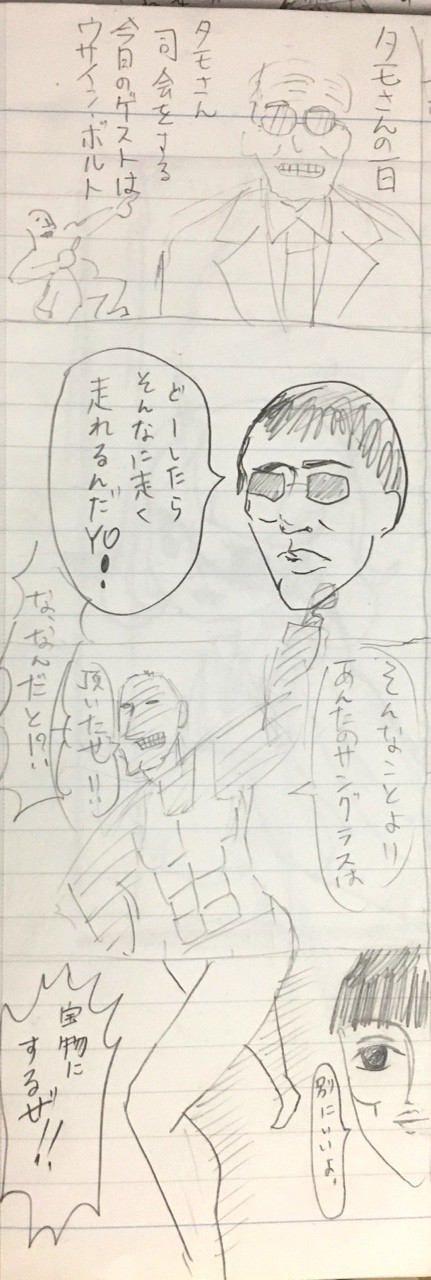 タモさんの一日
タモさん
司会をする
今日のゲストは
ウサイン・ボルト
どーしたら
そんなに速く
走れるんだYO!
そんなことより!!
あんたのサングラスは
頂いたぜ!!
な、なんだと!?!
別にいいよ。
宝物に
するぜ!!